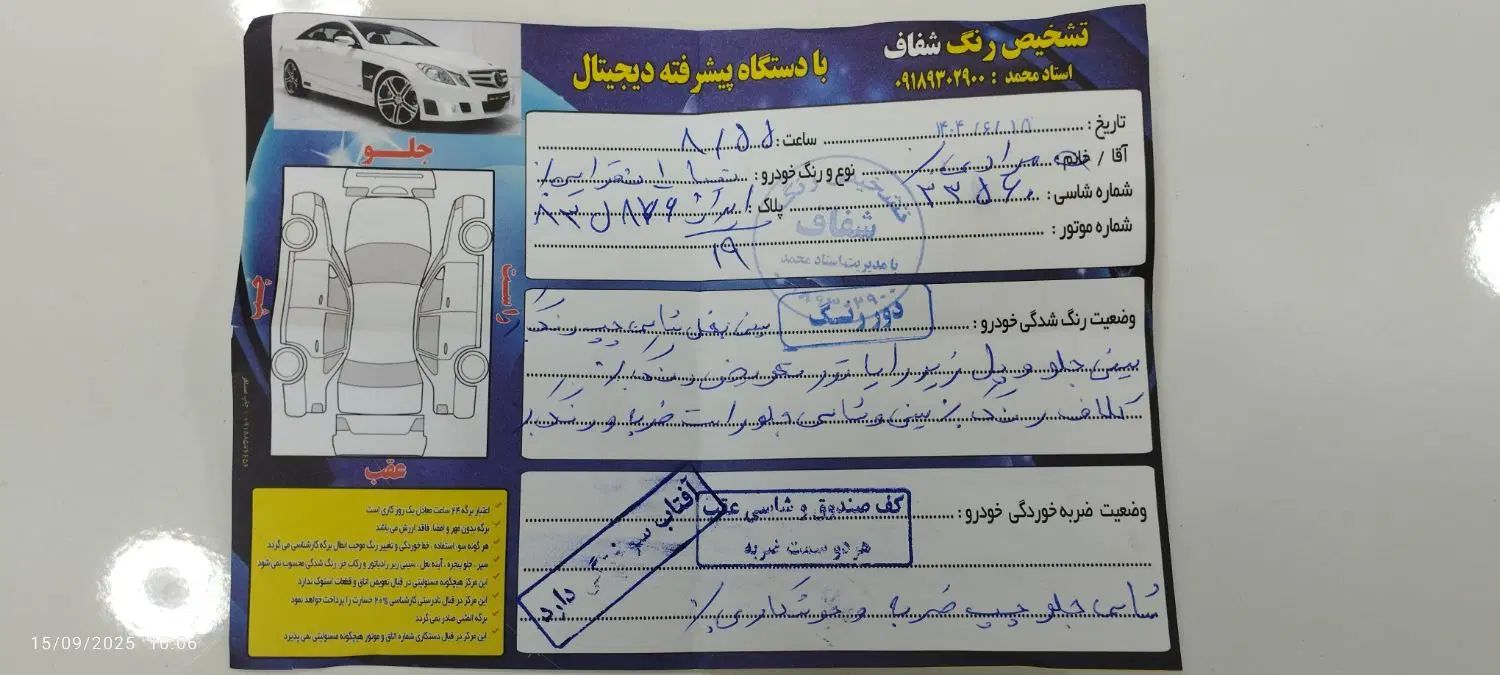 تشخیص رنگ شفاف
با دستگاه پیشرفته دیجیتال
استاد محمد : ۰۹۱۸۹۳۰۲۹۰۰
تاریخ : ۱۴۰۴/۶/۱۵ ساعت : ۸/۵۵
آقا / خانم : مرادی نوع و رنگ خودرو :
شماره شاسی : ۳۳۵۶۰ پلاک : ایران ۸۳ ل ۸۷۶
۱۹
شماره موتور :
تشخیص رنگ
شفاف
با مدیریت استاد محمد
جلو
راست
چپ
عقب
وضعیت رنگ شدگی خودرو : دور رنگ سینی بغل شاسی چپ رنگ
سینی جلو و پل زیر رادیاتور تعویض رنگ
کلاف رنگ سینی و شاسی جلو راست ضربه و رنگ
وضعیت ضربه خوردگی خودرو : کف صندوق و شاسی عقب
هر دو سمت ضربه
آفتاب سوختگی دارد
شاسی جلو چپ ضربه و جوشکاری
اعتبار برگه ۲۴ ساعت معادل یک روز کاری است
برگه بدون مهر و امضا فاقد ارزش می باشد
هر گونه سو استفاده ، خط خوردگی و تغییر رنگ موجب ابطال برگه کارشناسی می گردد
سپر ، جلو پنجره ، آینه بغل ، سینی زیر رادیاتور و رکاب جز رنگ شدگی محسوب نمی شود
این مرکز هیچگونه مسئولیتی در قبال تعویض اتاق و قطعات استوک ندارد
این مرکز در قبال نادرستی کارشناسی ۲۰% خسارت را پرداخت خواهد نمود
برگه المثنی صادر نمی گردد
این مرکز در قبال دستکاری شماره اتاق و موتور هیچگونه مسئولیتی نمی پذیرد
15/09/2025 10:06